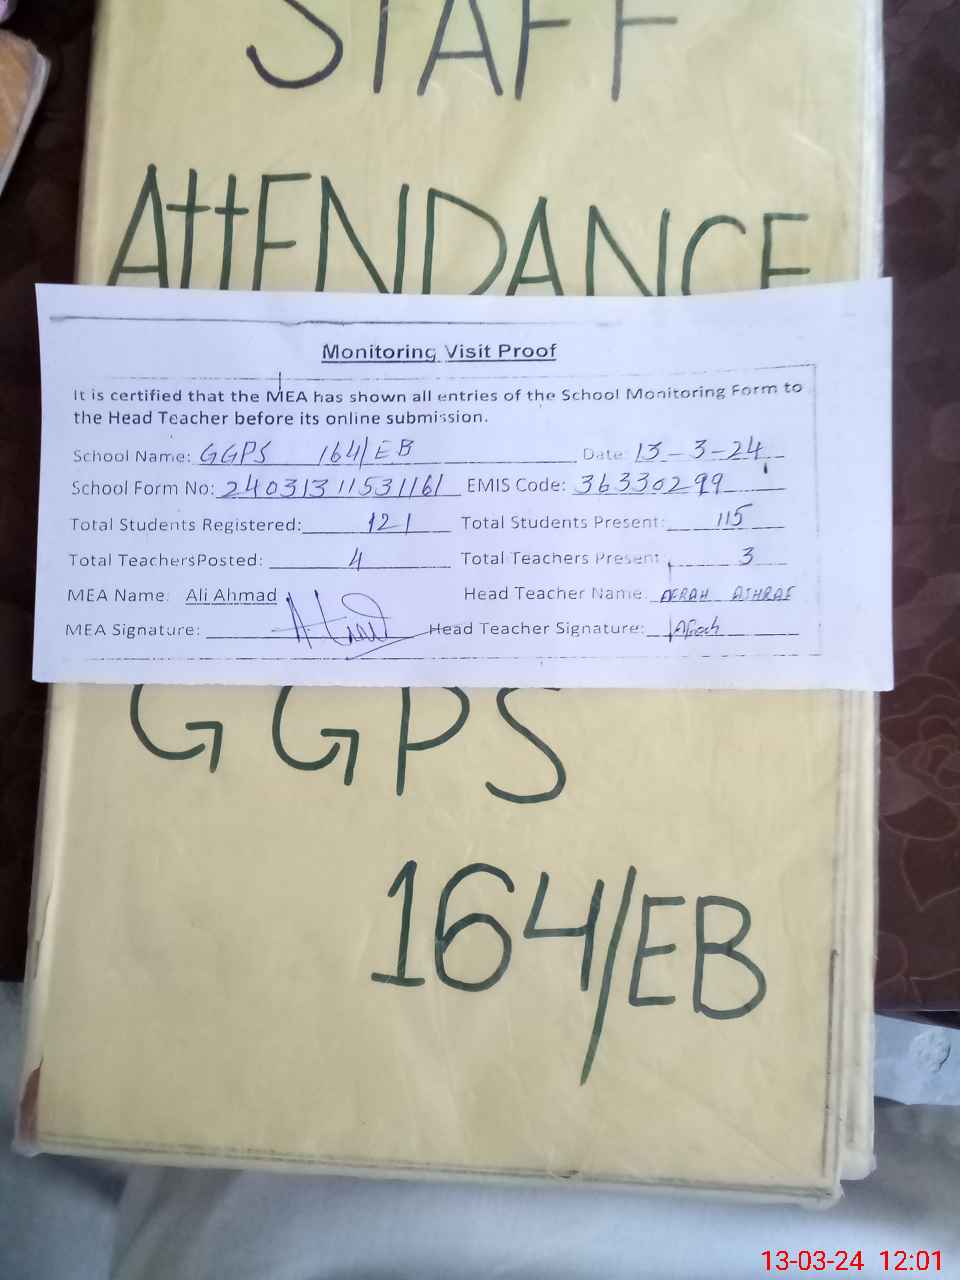 STAFF
ATTENDANCE
Monitoring Visit Proof
It is certified that the MEA has shown all entries of the School Monitoring Form to
the Head Teacher before its online submission.
School Name: GGPS 164/EB Date: 13-3-24
School Form No: 24031311531161 EMIS Code: 36330299
Total Students Registered: 121 Total Students Present: 115
Total TeachersPosted: 4 Total Teachers Present 3
MEA Name: Ali Ahmad Head Teacher Name: AFRAH ASHRAF
MEA Signature: Head Teacher Signature: Afrah
GGPS
164/EB
13-03-24 12:01